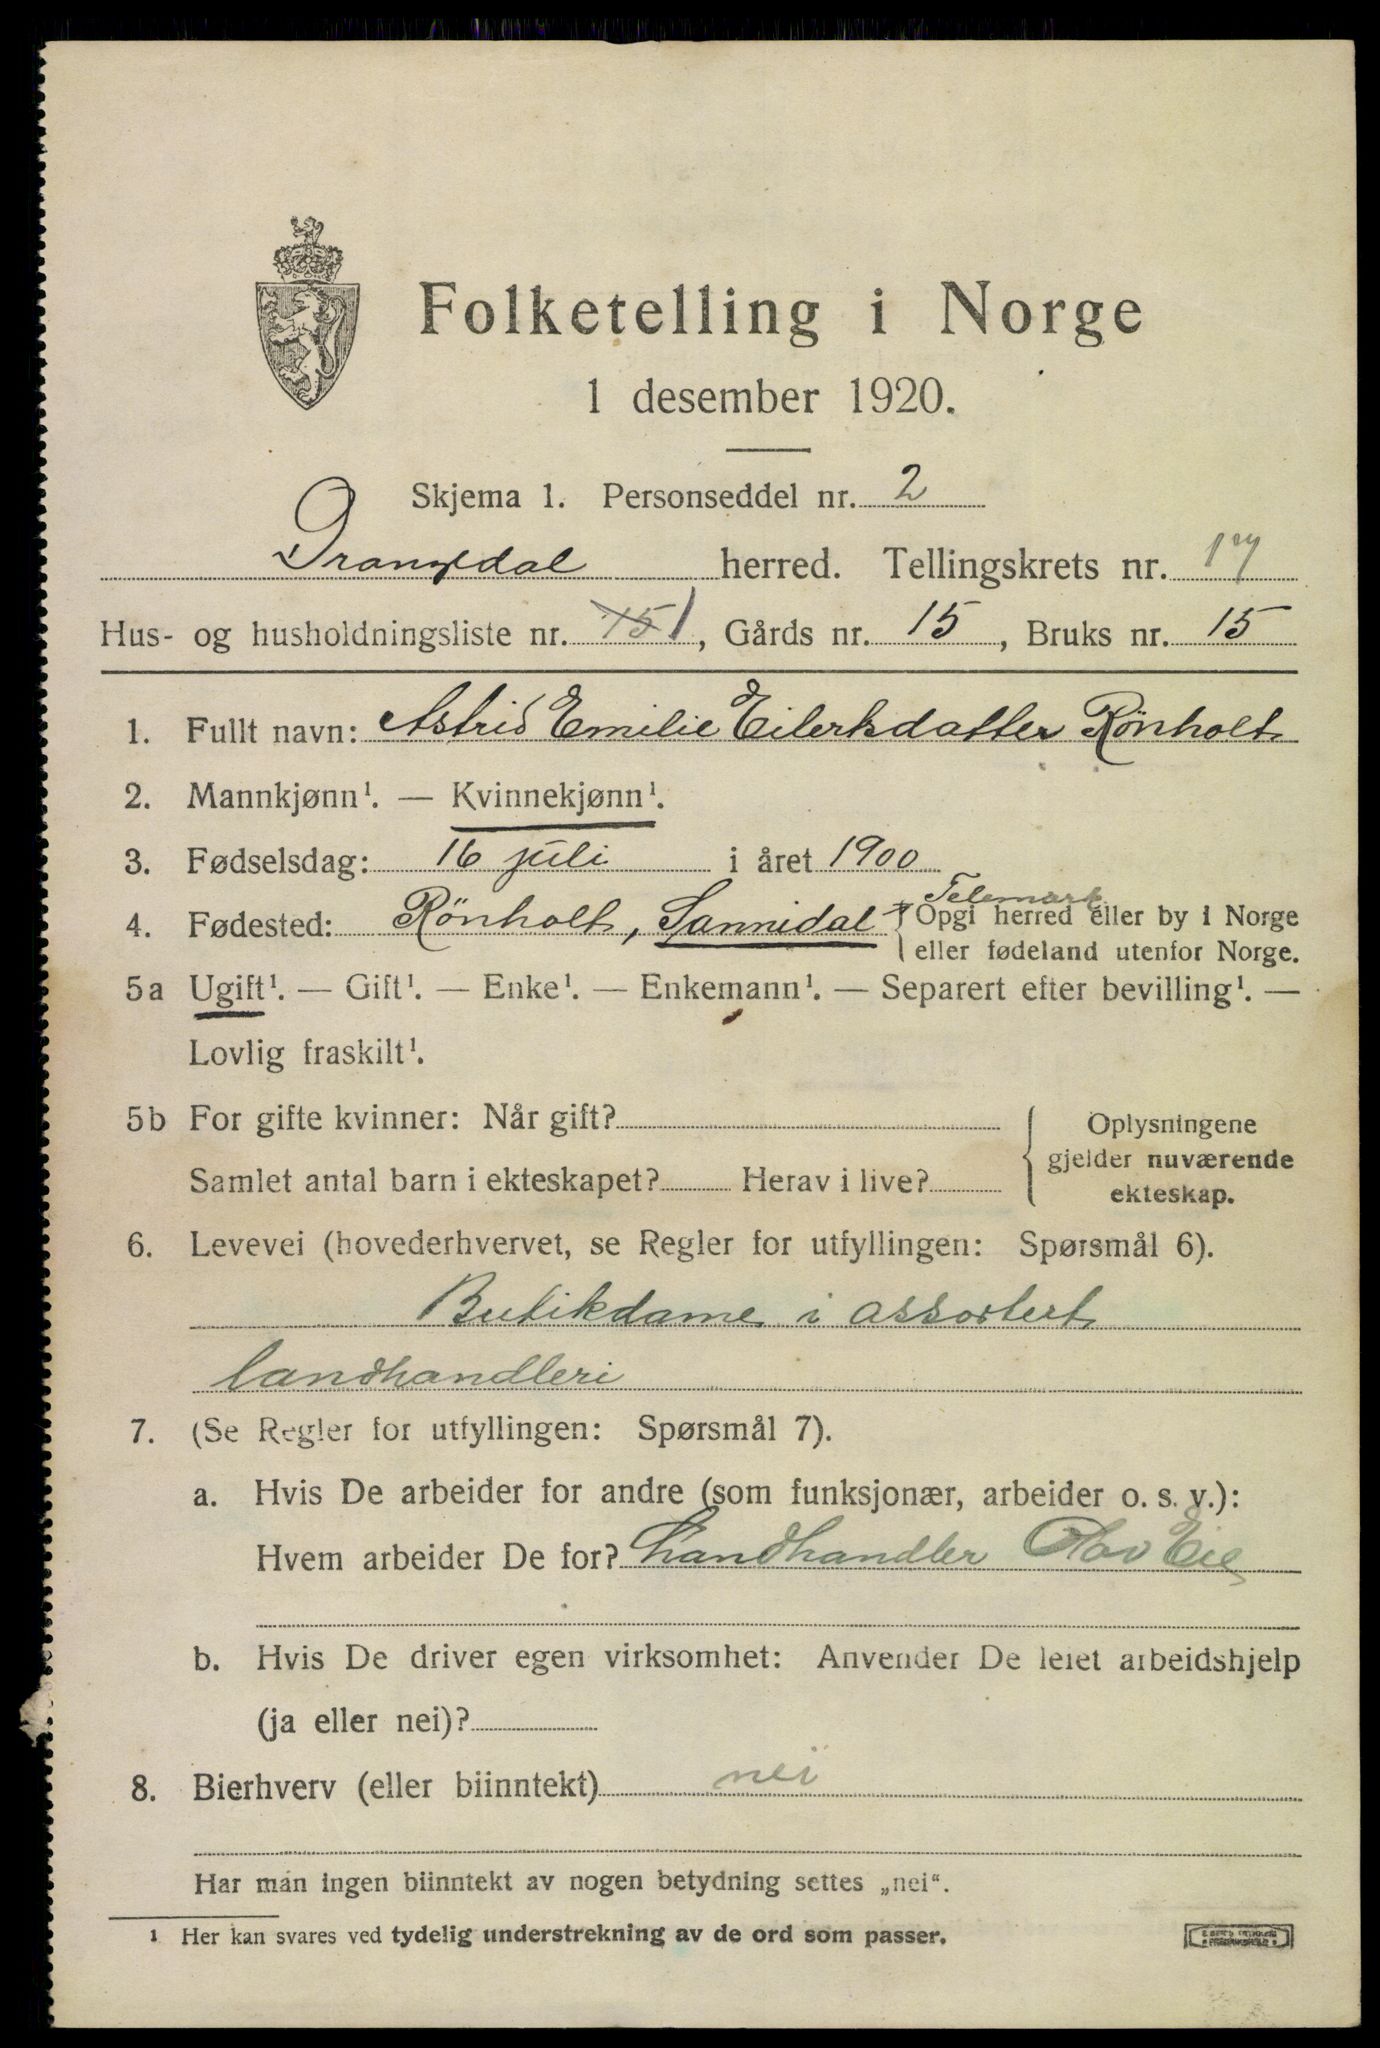 Folketelling i Norge
1 desember 1920.
Skjema 1. Personseddel nr. 2
Drangedal herred. Tellingskrets nr. 17
Hus- og husholdningsliste nr. 15 1, Gårds nr. 15, Bruks nr. 15
1. Fullt navn: Astrid Emilie Eilertsdatter Rönholt
2. Mannkjønn¹. — Kvinnekjønn¹.
3. Fødselsdag: 16 juli i året 1900
Telemark
4. Fødested: Rönholt, Sannidal { Opgi herred eller by i Norge
eller fødeland utenfor Norge.
5a Ugift¹. — Gift¹. — Enke¹. — Enkemann¹. — Separert efter bevilling¹. —
Lovlig fraskilt¹.
5b For gifte kvinner: Når gift?
Samlet antal barn i ekteskapet? Herav i live?
Oplysningene
gjelder nuværende
ekteskap.
6. Levevei (hovederhvervet, se Regler for utfyllingen: Spørsmål 6).
Butikdame i assortert
landhandleri
7. (Se Regler for utfyllingen: Spørsmål 7).
a. Hvis De arbeider for andre (som funksjonær, arbeider o. s. v.):
Hvem arbeider De for? Landhandler Olav Eie
b. Hvis De driver egen virksomhet: Anvender De leiet arbeidshjelp
(ja eller nei)?
8. Bierhverv (eller biinntekt) nei
Har man ingen biinntekt av nogen betydning settes „nei“.
¹ Her kan svares ved tydelig understrekning av de ord som passer.